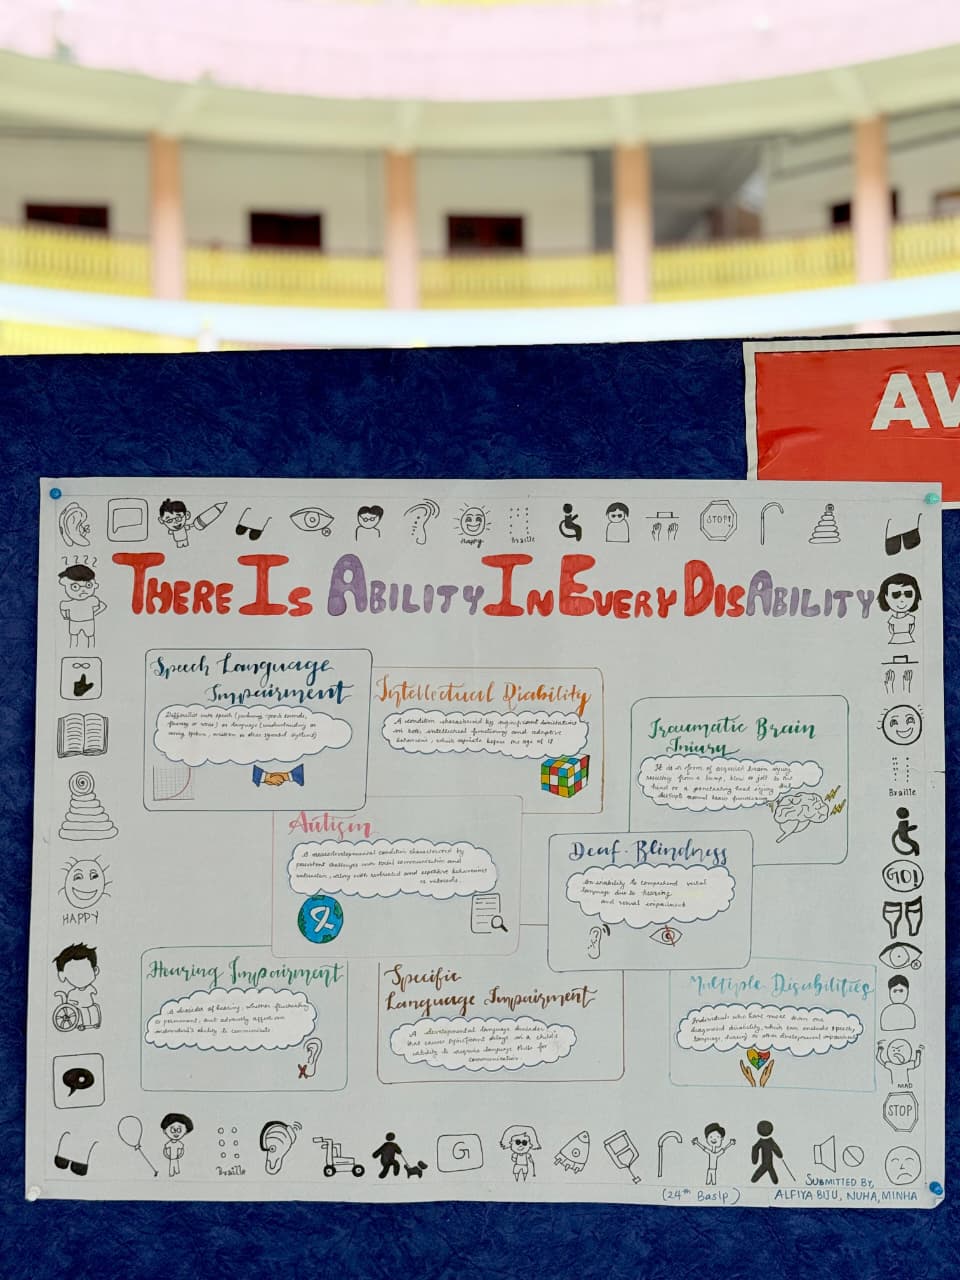 AW
Happy
Braille
STOP!
THERE IS ABILITY IN EVERY DISABILITY
Speech Language
Impairment
Difficulties with speech (
or language (understanding or
using spoken, written or other symbol systems)
Intellectual Disability
A condition characterized by significant limitations
in both intellectual functioning and adaptive
behaviour, which originate before the age of 18
Traumatic Brain
Injury
It is a form of acquired brain injury
resulting from a bump, blow or jolt to the
head or a penetrating head injury that
disrupts normal brain functioning
Autism
A neurodevelopmental condition characterized by
persistent challenges with social communication and
interaction, along with restricted and repetitive behaviours
or interests.
Deaf-Blindness
An inability to comprehend verbal
language due to hearing
and visual impairment
Hearing Impairment
A disorder of hearing, whether fluctuating
or permanent, that adversely affect an
individual's ability to communicate.
Specific
Language Impairment
A developmental language disorder
that causes significant delays in a child's
ability to acquire language skills for
communication.
Multiple Disabilities
Individuals who have more than one
diagnosed disability, which can include speech,
language, hearing or other developmental impairments
???
HAPPY
Braille
GO!
MAD
STOP
Braille
G
SUBMITTED BY,
(24th Baslp) ALFIYA BIJU, NUHA, MINHA